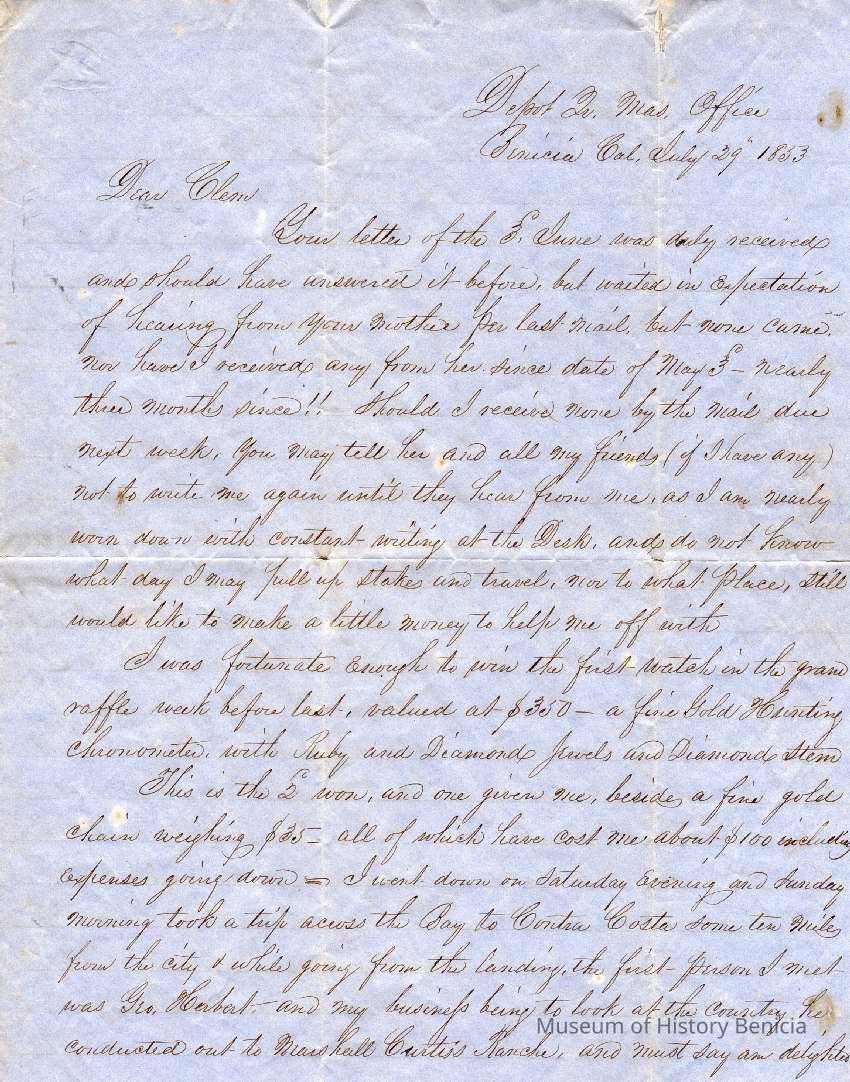 Depot Qr. Mas. Office
Benicia Cal. July 29" 1853
Dear Clem
Your letter of the 3d. June was duly received
and should have answered it before, but waited in expectation
of hearing from your mother per last mail, but none came.
nor have I received any from her since date of May 3d - nearly
three months since!! Should I receive none by the mail due
next week, you may tell her and all my friends (if I have any)
not to write me again until they hear from me, as I am nearly
worn down with constant writing at the Desk, and do not know
what day I may pull up stakes and travel, nor to what place, still
would like to make a little money to help me off with
I was fortunate enough to win the first watch in the grand
raffle week before last, valued at $350 - a fine Gold Hunting
chronometer, with Ruby and Diamond Jewels and Diamond Stem
This is the 2d won, and one given me, beside a fine gold
chain weighing $35 - all of which have cost me about $100 including
expenses going down = I went down on Saturday Evening and Sunday
morning took a trip across the Bay to Contra Costa some ten miles
from the city & while going from the landing, the first person I met
was Geo. Herbert - and my business being to look at the country he
conducted out to Marshall Curtis's Ranche, and must say am delighted
Museum of History Benicia